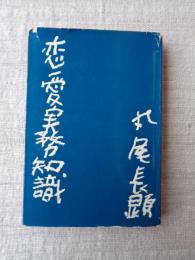 丸尾長顕
恋愛実務知識